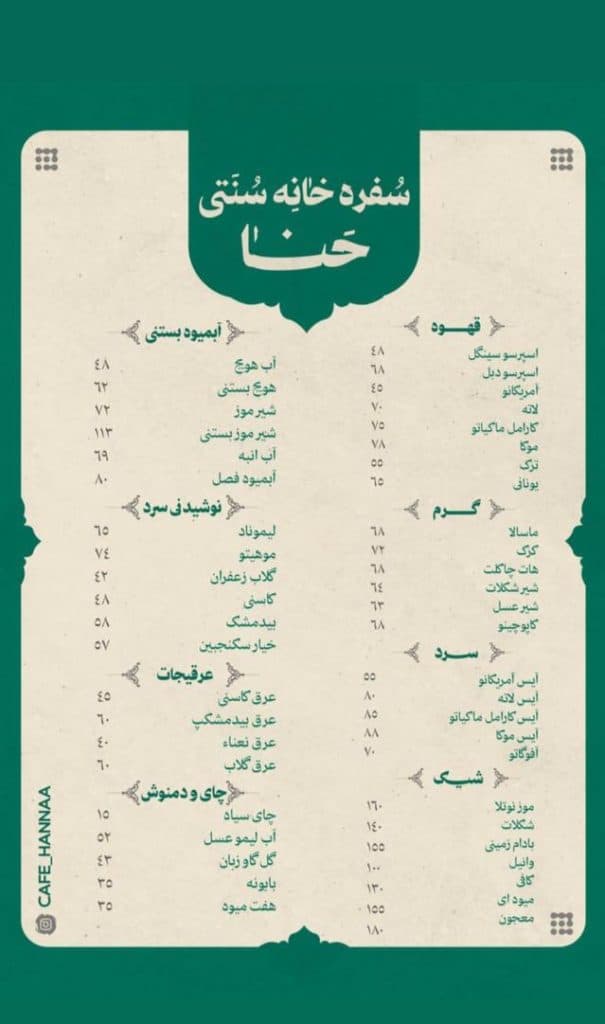 سُفره خانِه سُنَتی
حَنا
قهوه
اسپرسو سینگل ٤٨
اسپرسو دبل ٦٨
آمریکانو ٤٥
لاته ٧٠
کارامل ماکیاتو ٧٥
موکا ٧٨
ترک ٥٥
یونانی ٦٥
گرم
ماسالا ٦٨
کرک ٧٢
هات چاکلت ٦٨
شیر شکلات ٦٤
شیر عسل ٦٣
کاپوچینو ٦٨
سرد
آیس آمریکانو ٥٥
آیس لاته ٨٠
آیس کارامل ماکیاتو ٨٥
آیس موکا ٨٨
آفوگاتو ٧٠
شیک
موز نوتلا ١٦٠
شکلات ١٤٠
بادام زمینی ١٥٥
وانیل ١٠٠
کافی ١٣٠
میوه ای ١٥٥
معجون ١٨٠
آبمیوه بستنی
آب هویج ٤٨
هویج بستنی ٦٢
شیر موز ٧٢
شیر موز بستنی ١١٣
آب انبه ٦٩
آبمیوه فصل ٨٠
نوشیدنی سرد
لیموناد ٦٥
موهیتو ٧٤
گلاب زعفران ٤٢
کاسنی ٤٨
بیدمشک ٥٨
خیار سکنجبین ٥٧
عرقیجات
عرق کاسنی ٤٥
عرق بیدمشکپ ٦٠
عرق نعناء ٤٠
عرق گلاب ٦٠
چای و دمنوش
چای سیاه ١٥
آب لیمو عسل ٥٢
گل گاو زبان ٤٣
بابونه ٣٥
هفت میوه ٣٥
CAFE_HANNAA